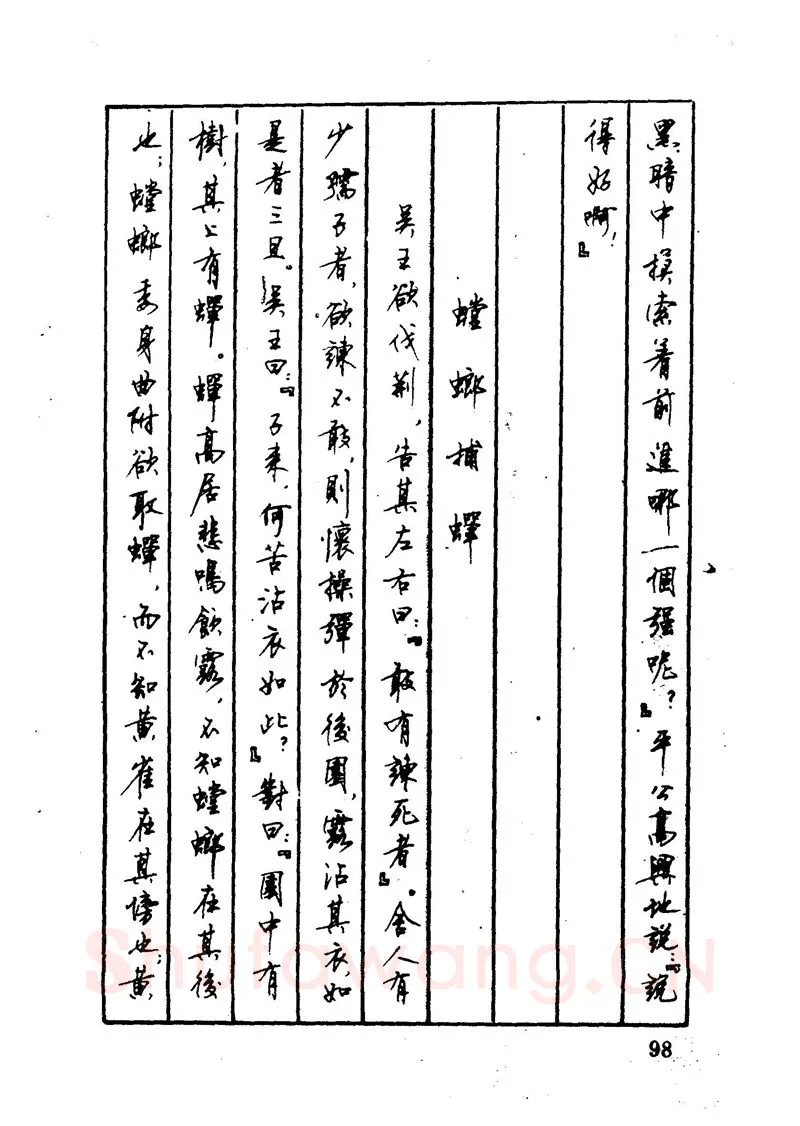 黑暗中摸索着前進哪一個强呢？』平公高興地說：『說
得好啊！』
螳螂捕蟬
吴王欲伐荆，告其左右曰：『敢有諫死者。』舍人有
少孺子者，欲諫不敢，則懷操彈於後園，露沾其衣，如
是者三旦。吴王曰：『子来，何苦沾衣如此？』對曰：『園中有
樹，其上有蟬。蟬高居悲鳴飲露，不知螳螂在其後
也；螳螂委身曲附欲取蟬，而不知黄雀在其傍也；黄
98
Shufawang.CN